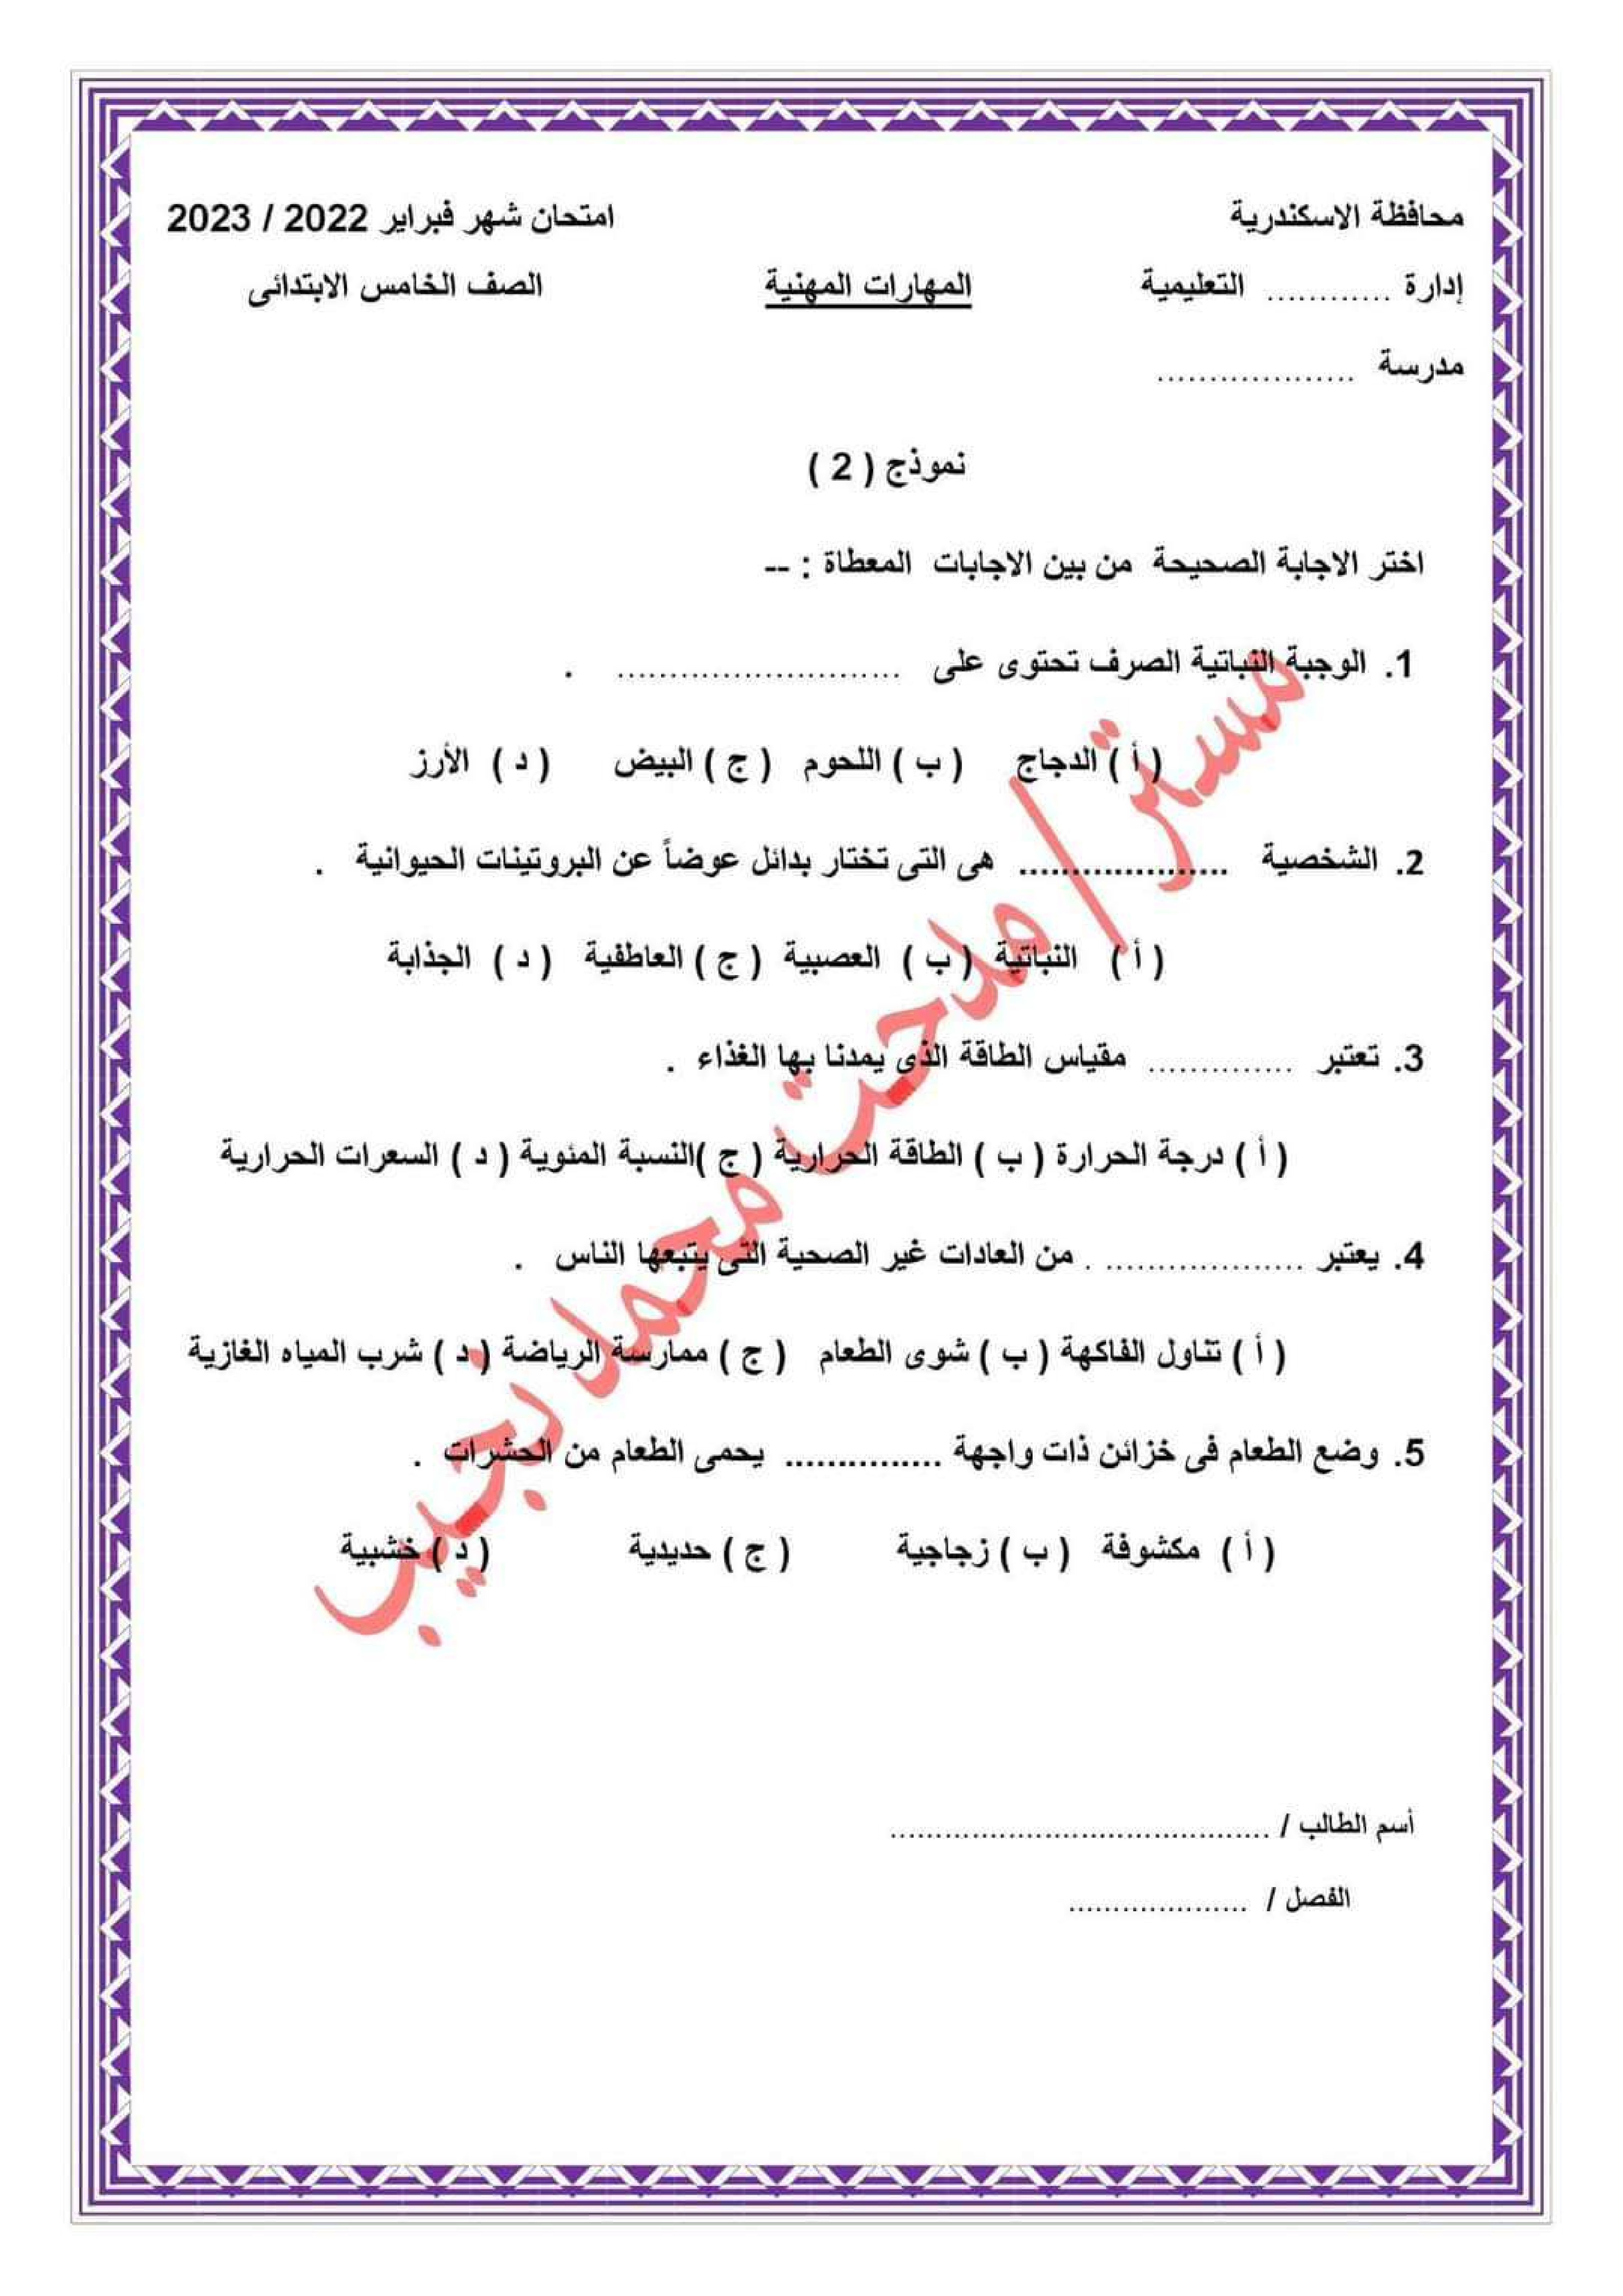 محافظة الاسكندرية
امتحان شهر فبراير 2022 / 2023
إدارة ............ التعليمية
المهارات المهنية
الصف الخامس الابتدائى
مدرسة ...................
نموذج ( 2 )
اختر الاجابة الصحيحة من بين الاجابات المعطاة : --
1. الوجبة النباتية الصرف تحتوى على ........................... .
( أ ) الدجاج ( ب ) اللحوم ( ج ) البيض ( د ) الأرز
2. الشخصية .................... هى التى تختار بدائل عوضاً عن البروتينات الحيوانية .
( أ ) النباتية ( ب ) العصبية ( ج ) العاطفية ( د ) الجذابة
3. تعتبر .............. مقياس الطاقة الذى يمدنا بها الغذاء .
( أ ) درجة الحرارة ( ب ) الطاقة الحرارية ( ج )النسبة المئوية ( د ) السعرات الحرارية
4. يعتبر ................... . من العادات غير الصحية التى يتبعها الناس .
( أ ) تناول الفاكهة ( ب ) شوى الطعام ( ج ) ممارسة الرياضة ( د ) شرب المياه الغازية
5. وضع الطعام فى خزائن ذات واجهة ............... يحمى الطعام من الحشرات .
( أ ) مكشوفة ( ب ) زجاجية ( ج ) حديدية ( د ) خشبية
مستر/ مدحت محمد نجيب
أسم الطالب / ..........................................
الفصل / ....................